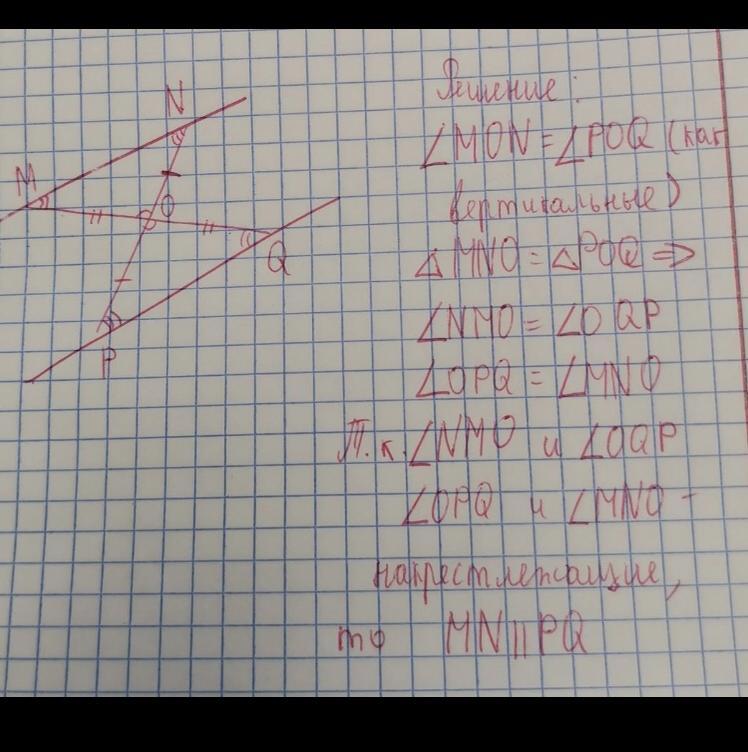 N
M
O
Q
P
Решение:
∠MON = ∠POQ (как
вертикальные)
△MNO = △POQ ⇒
∠NMO = ∠OQP
∠OPQ = ∠MNO
Т. к. ∠NMO и ∠OQP
∠OPQ и ∠MNO -
накрест лежащие,
то MN || PQ